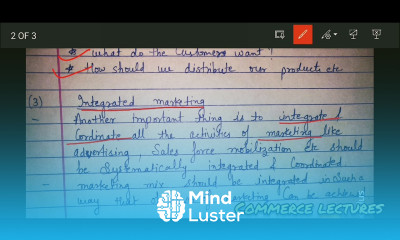 2 OF 3
* What do the Customers want?
* How should we distribute our products etc
(3) Integrated marketing
- Another important thing is to integrate &
Cordinate all the activities of marketing like
advertising Sales force mobilization etc should
be Systematically integrated & Coordinated
- marketing mix should be integrated in Such a
way that
Mind
Luster
COMMERCE LECTURES